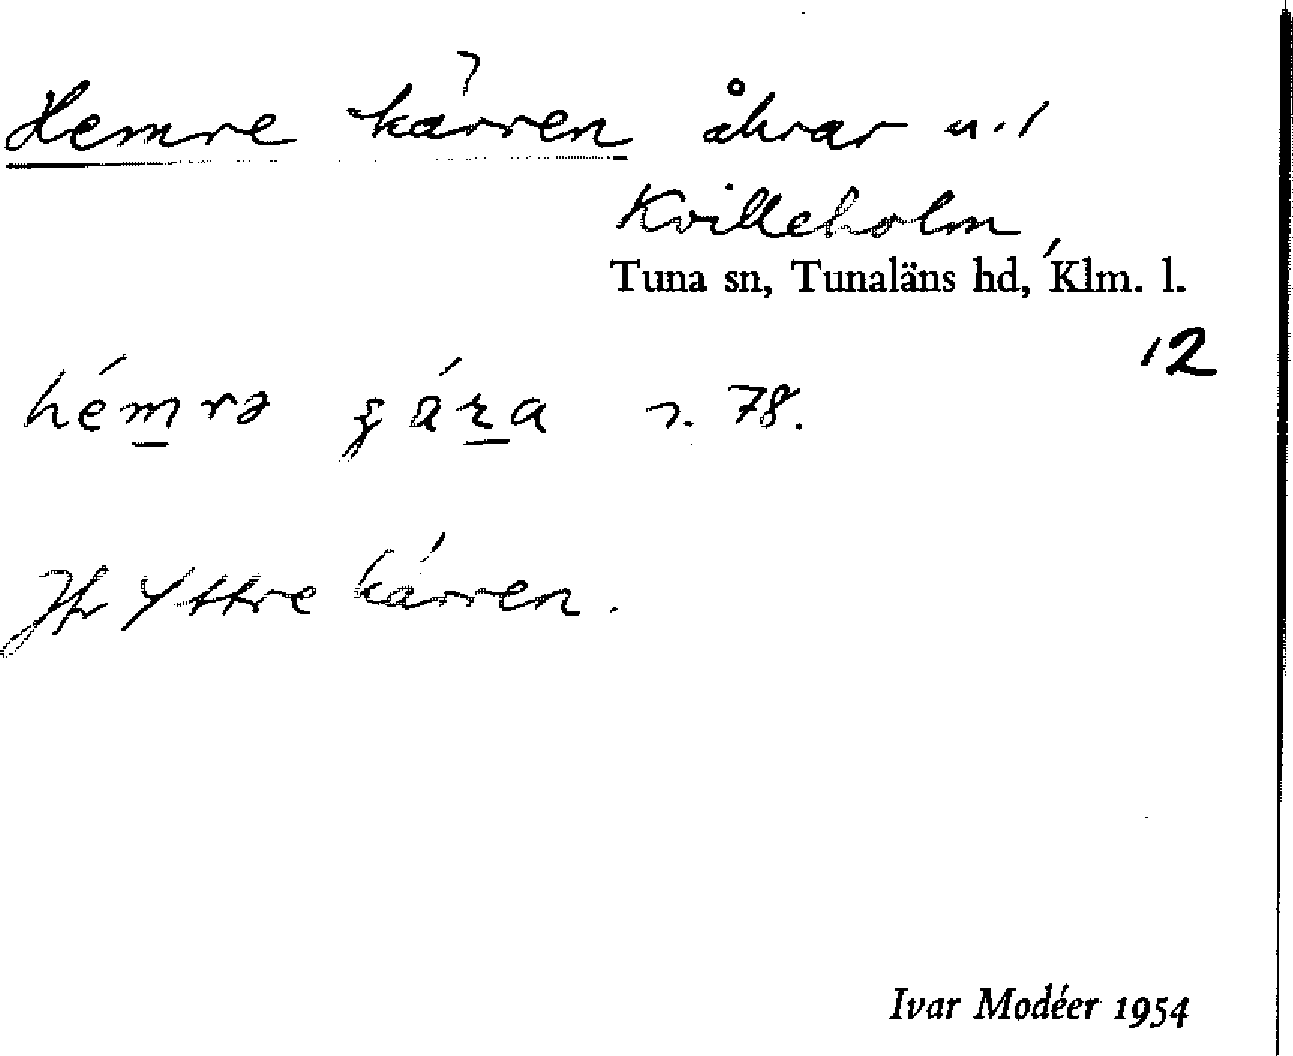 Hemre kärren åkrar u. /
Kvilleholm,
Tuna sn, Tunaläns hd, Klm. l.
12
hémrə s. 78.
Jfr Yttre kärren.
Ivar Modéer 1954